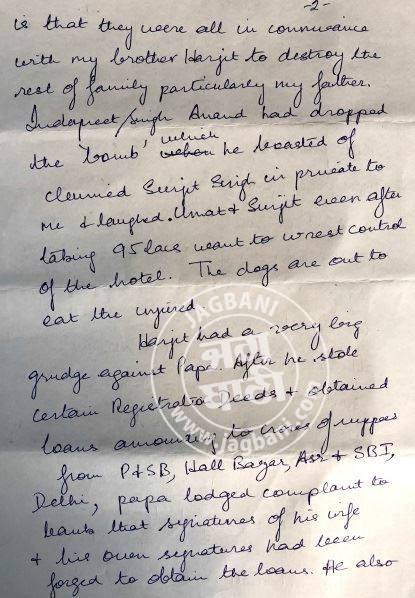 -2-
is that they were all in connivance
with my brother Harjit to destroy the
rest of family particularly my father.
Inderpreet Singh Anand had dropped
the 'bomb' which he boasted of
Surjit Singh in private to
me & laughed. & Surjit even after
taking 95 lacs want to wrest control
of the hotel. The dogs are out to
eat the injured.
Harjit had a very big
grudge against Papa. After he stole
certain Registration Deeds & obtained
loans amounting to crores of rupees
from P&SB, Hall Bazar, Asr & SBI,
Delhi, papa lodged complaint to
bank that signatures of his wife
& his own signatures had been
forged to obtain the loans. He also
JAGBANI
ਜਗ ਬਾਣੀ
www.jagbani.com